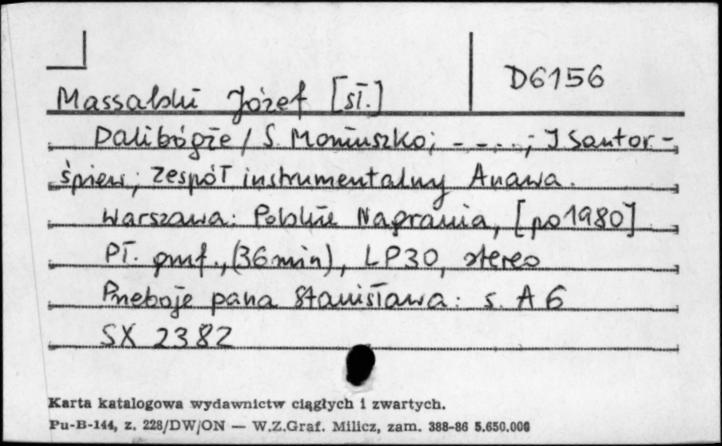 D6156
Massalski Józef [sł.]
Dalibógże / S. Moniuszko; - - - -; I Santor -
śpiew; Zespół instrumentalny Anawa.
Warszawa: Polskie Nagrania, [po 1980]
Pł. gmf., (36 min), LP30, stereo
Przeboje pana Stanisława: s. A 6
SX 2382
Karta katalogowa wydawnictw ciągłych i zwartych.
Pu-B-144, z. 228/DW/ON — W.Z.Graf. Milicz, zam. 388-86 5.650.000